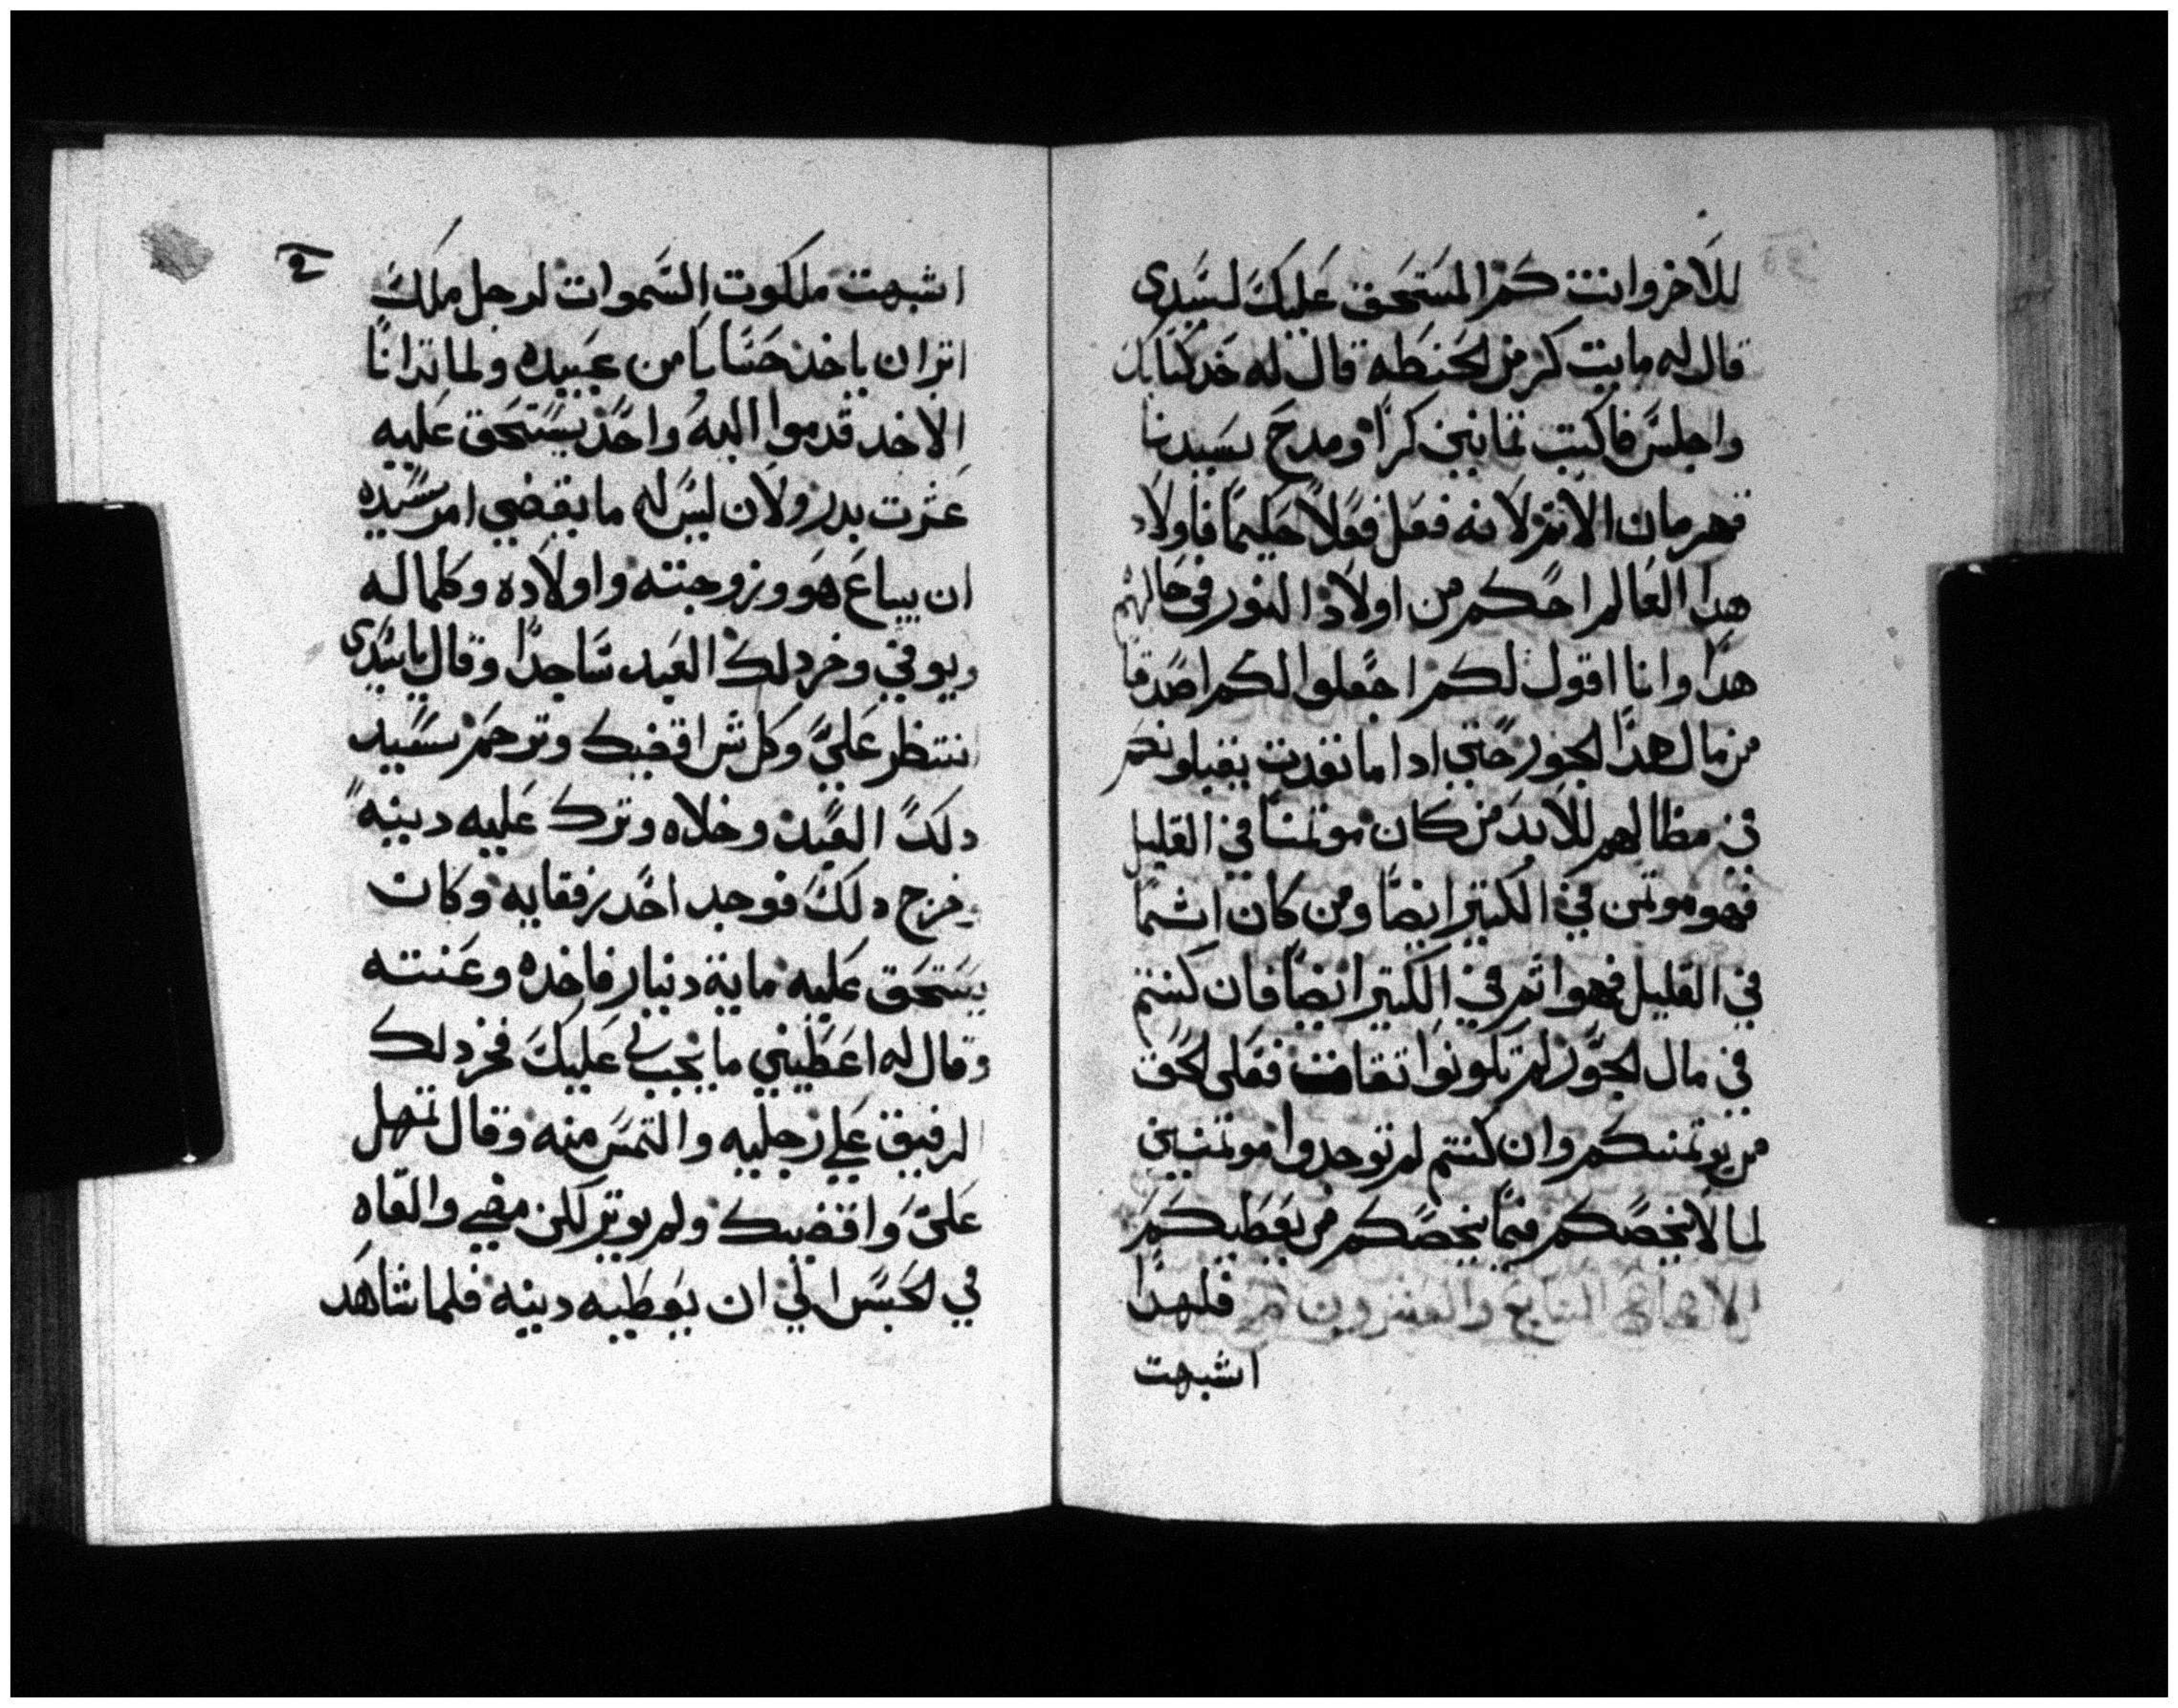 للاخر وانت كم المستحق عليك لسيدى
قال له مايت كر من الحنطه قال له خد كتابك
واجلس فاكتب تمانين كرا ومدح سيدنا
قهرمان الاتم لانه فعل فعلا حكيما فاولاد
هدا العالم احكم من اولاد النور في حالهم
هدا وانا اقول لكم اجعلوا لكم اصدقا
من مال هدا الجور حتي ادا ما نفدت يقبلونكم
في مظالهم للابد من كان موتمنا في القليل
فهو موتمن في الكتير ايضا ومن كان اثما
في القليل فهو اثم في الكتير ايضا فان كنتم
في مال الجور لم تكونوا تقات فعلى الحق
من يوتمنكم وان كنتم لم توجدوا موتمنين
لما لا يخصكم فما يخصكم من يعطيكم
الاصحاح السابع والعشرون فلهدا
اشبهت
٢
اشبهت ملكوت السموات لرجل ملك
اتر ان ياخد حسابا من عبيده ولما بدا بنا
الاخد قدموا اليه واحد يستحق عليه
عشرت بدر ولان ليس له ما يقضي امر سيده
ان يباع هو وزوجته واولاده وكلما له
ويوفي وخر دلك العبد ساجدا وقال يا سيدى
انتظر علي وكل شي اقضيك وترحم سيد
دلك العبد وخلاه وترك عليه دينه
وخرج دلك فوجد احد رفقايه وكان
يستحق عليه ماية دينار فاخده وعنته
وقال له اعطيني ما يجب لي عليك فخر دلك
الرفيق علي رجليه والتمس منه وقال تمهل
علي واقضيك ولم يوتر لكن مضي والقاه
في الحبس الي ان يعطيه دينه فلما شاهد